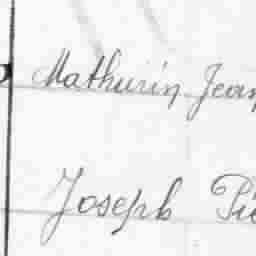 Mathurin Jean
Joseph Pie